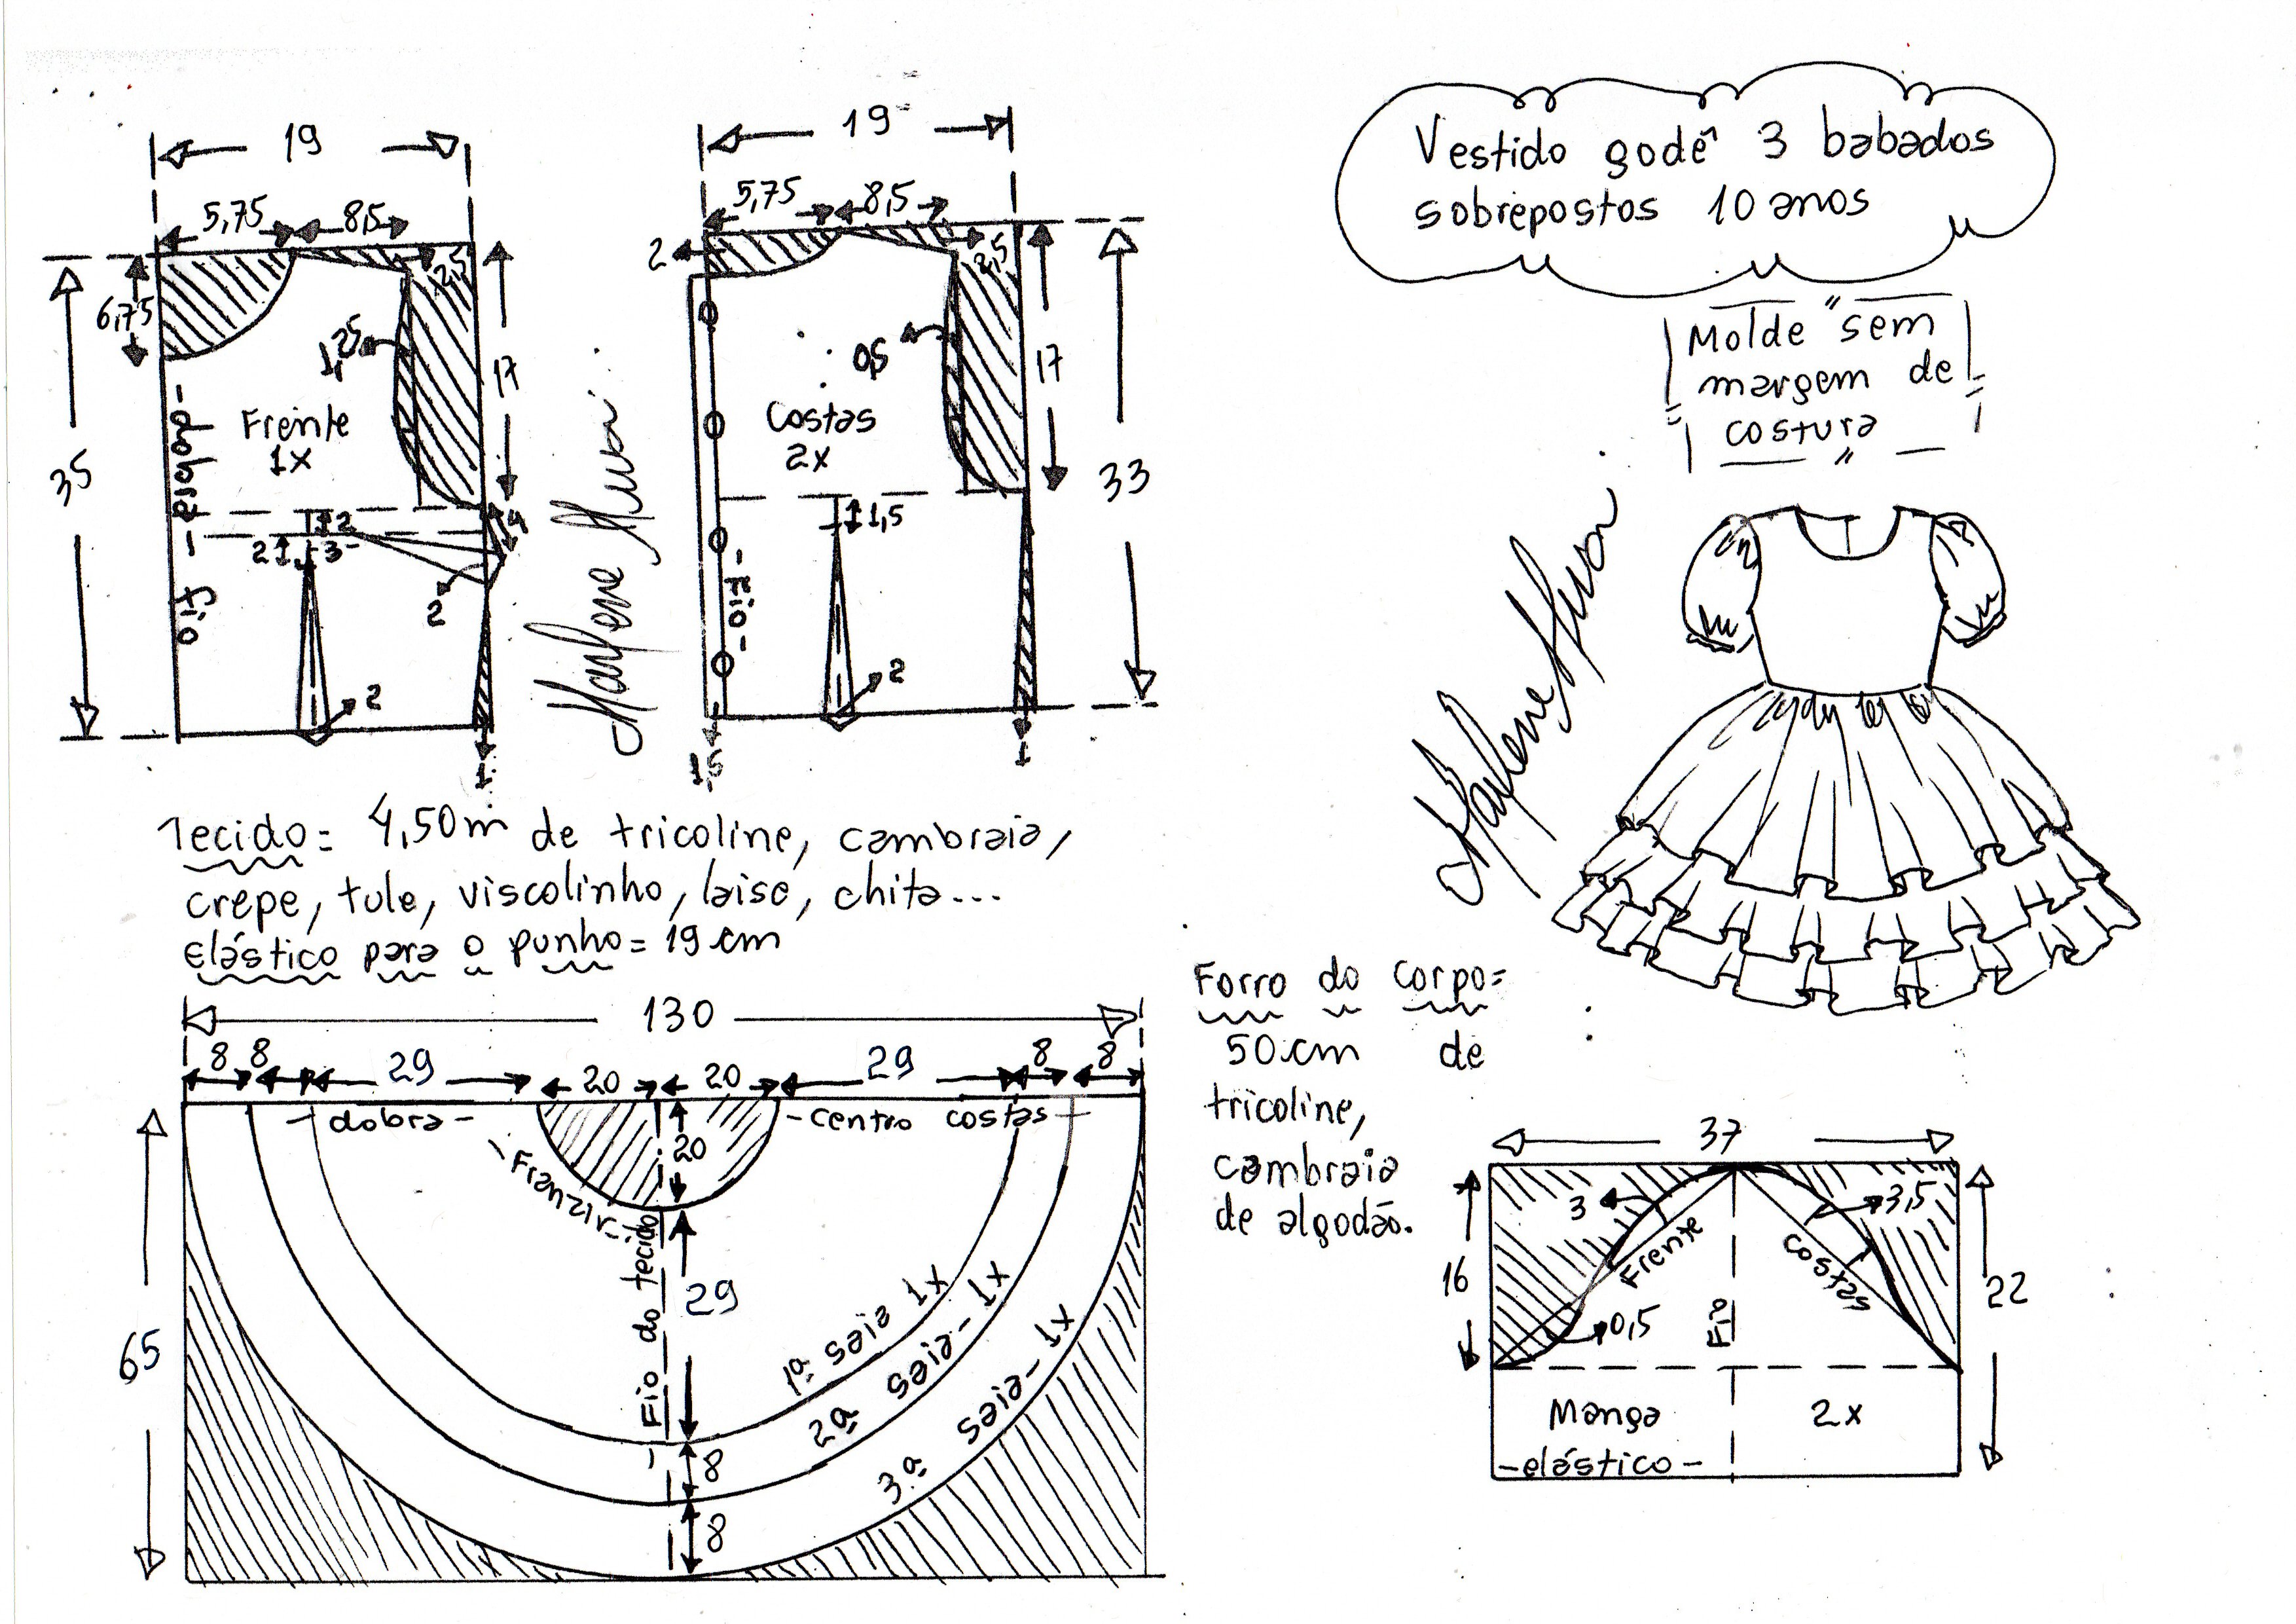 Vestido godê 3 babados
sobrepostos 10 anos
Molde "sem
margem de
costura
"
19
5,75
8,5
2,5
6,75
1,25
17
35
Frente
1x
Fio - dobrado -
4
2
2
3
2
2
1
19
5,75
8,5
2
2,5
0,5
17
33
Costas
2x
1,5
- Fio -
2
1,5
1
Marlene Mukai
Marlene Mukai
Tecido= 4,50m de tricoline, cambraia,
crepe, tule, viscolinho, laise, chita...
elástico para o punho= 19 cm
Forro do corpo=
50 cm de
tricoline,
cambraia
de algodão.
130
8 8 29 20 20 29 8 8
- dobra - - centro costas -
- Franzir -
20
Fio do tecido -
29
65
1ª saia 1x
2ª saia- 1x
3ª saia- 1x
8
8
37
3
3,5
16
Frente
Costas
22
Fio
0,5
Manga 2x
- elástico -